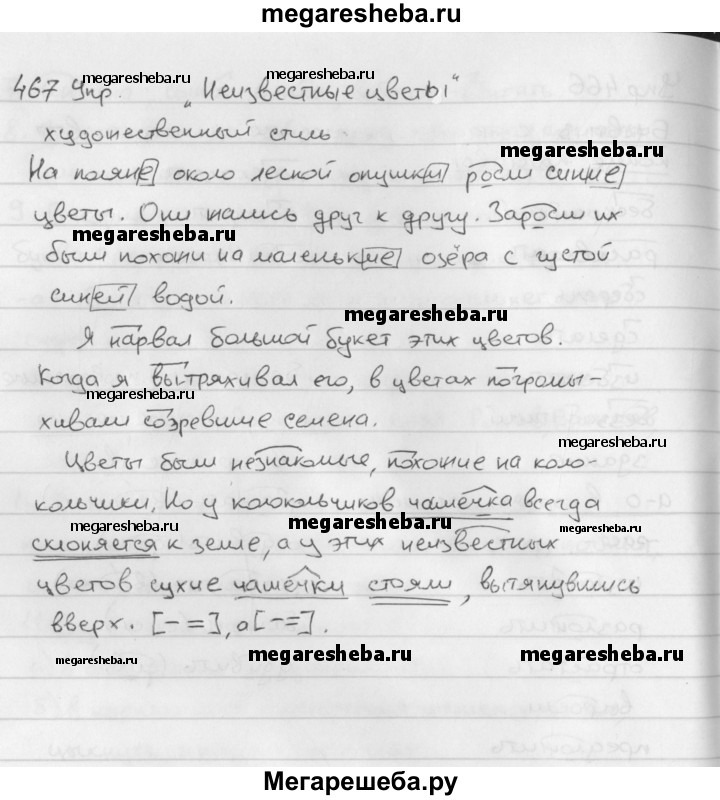 megaresheba.ru
467 Упр. „Неизвестные цветы"
megaresheba.ru megaresheba.ru
художественный стиль
megaresheba.ru
На поляне около лесной опушки росли синие
цветы. Они жались друг к другу. Заросли их
megaresheba.ru
были похожи на маленькие озёра с густой
синей водой.
megaresheba.ru
Я нарвал большой букет этих цветов.
Когда я вытряхивал его, в цветах погромы-
megaresheba.ru
хивали созревшие семена.
megaresheba.ru
Цветы были незнакомые, похожие на коло-
кольчики. Но у колокольчиков чашечка всегда
megaresheba.ru megaresheba.ru
склоняется к земле, а у этих неизвестных
цветов сухие чашечки стояли, вытянувшись
вверх. [– =], а [– =].
megaresheba.ru megaresheba.ru megaresheba.ru
Мегарешеба.ру